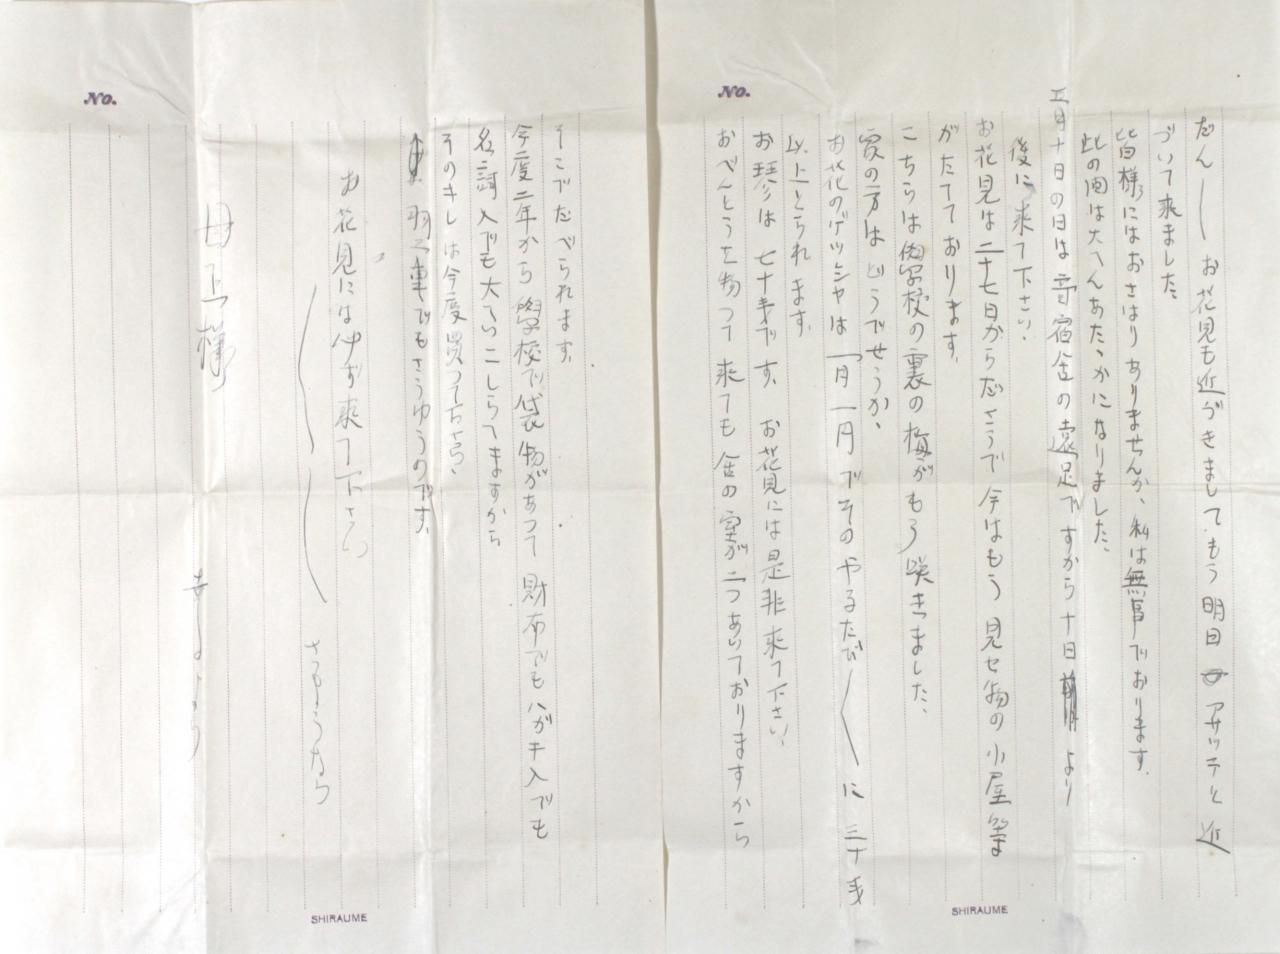 No.
だん〳〵お花見も近づきまして、もう明日アサッテと近
づいて来ました
皆様にはおさはりありませんか、私は無事でおります。
此の間は大へんあたゝかになりました、
五月十日の日は寄宿舎の遠足ですから十日より
後に来て下さい、
お花見は二十七日からださうで今はもう見せ物の小屋等
がたてております。
こちらは學校の裏の梅がもう咲きました、
家の方はどうでせうか、
お花のゲッシャは一月一円でそのやるたび〳〵に三十銭
以上とられます。
お琴は七十銭です。お花見には是非来て下さい、
おべんとうを物つて来ても舎の室が二つあいておりますから
SHIRAUME
No.
そこでたべられます。
今度二年から學校で袋物があつて財布でもハガキ入でも
名詞入でも大ていこしらへますから
そのキレは今度買つて下さい、
羽二重でもさうゆうのです。
お花見には必ず来て下さい
さようなら
母上様
より
SHIRAUME